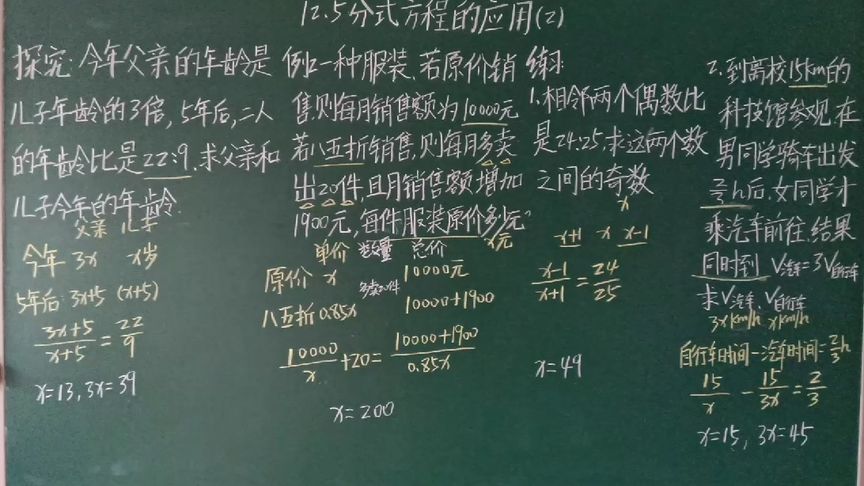 12.5分式方程的应用(2)
探究:今年父亲的年龄是
儿子年龄的3倍,5年后,二人
的年龄比是22:9,求父亲和
儿子今年的年龄.
父亲 儿子
今年 3x x岁
5年后 3x+5 (x+5)
3x+5/x+5=22/9
x=13,3x=39
例2一种服装,若原价销
售,则每月销售额为10000元
若八五折销售,则每月多卖
出20件,且月销售额增加
1900元,每件服装原价多少元?
x元
单价 数量 总价
原价 x 10000元
多卖20件
八五折 0.85x 10000+1900
10000/x+20=10000+1900/0.85x
x=200
练:
1.相邻两个偶数比
是24:25,求这两个数
之间的奇数
x
x+1 x x-1
x-1/x+1=24/25
x=49
2.到离校15km的
科技馆参观,在
男同学骑车出发
2/3h后,女同学才
乘汽车前往,结果
同时到 V汽车=3V自行车
求V汽车,V自行车
3xkm/h xkm/h
自行车时间-汽车时间=2/3h
15/x-15/3x=2/3
x=15, 3x=45